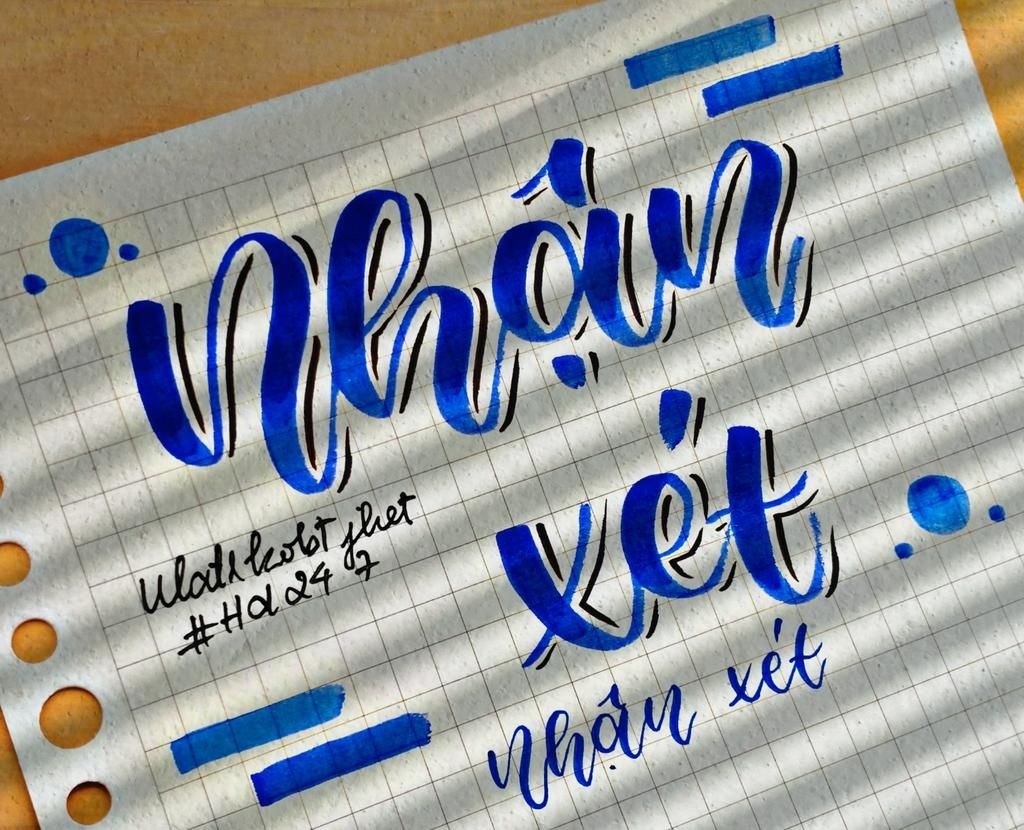 Nhận
xét
#Hd 24 7
nhận xét